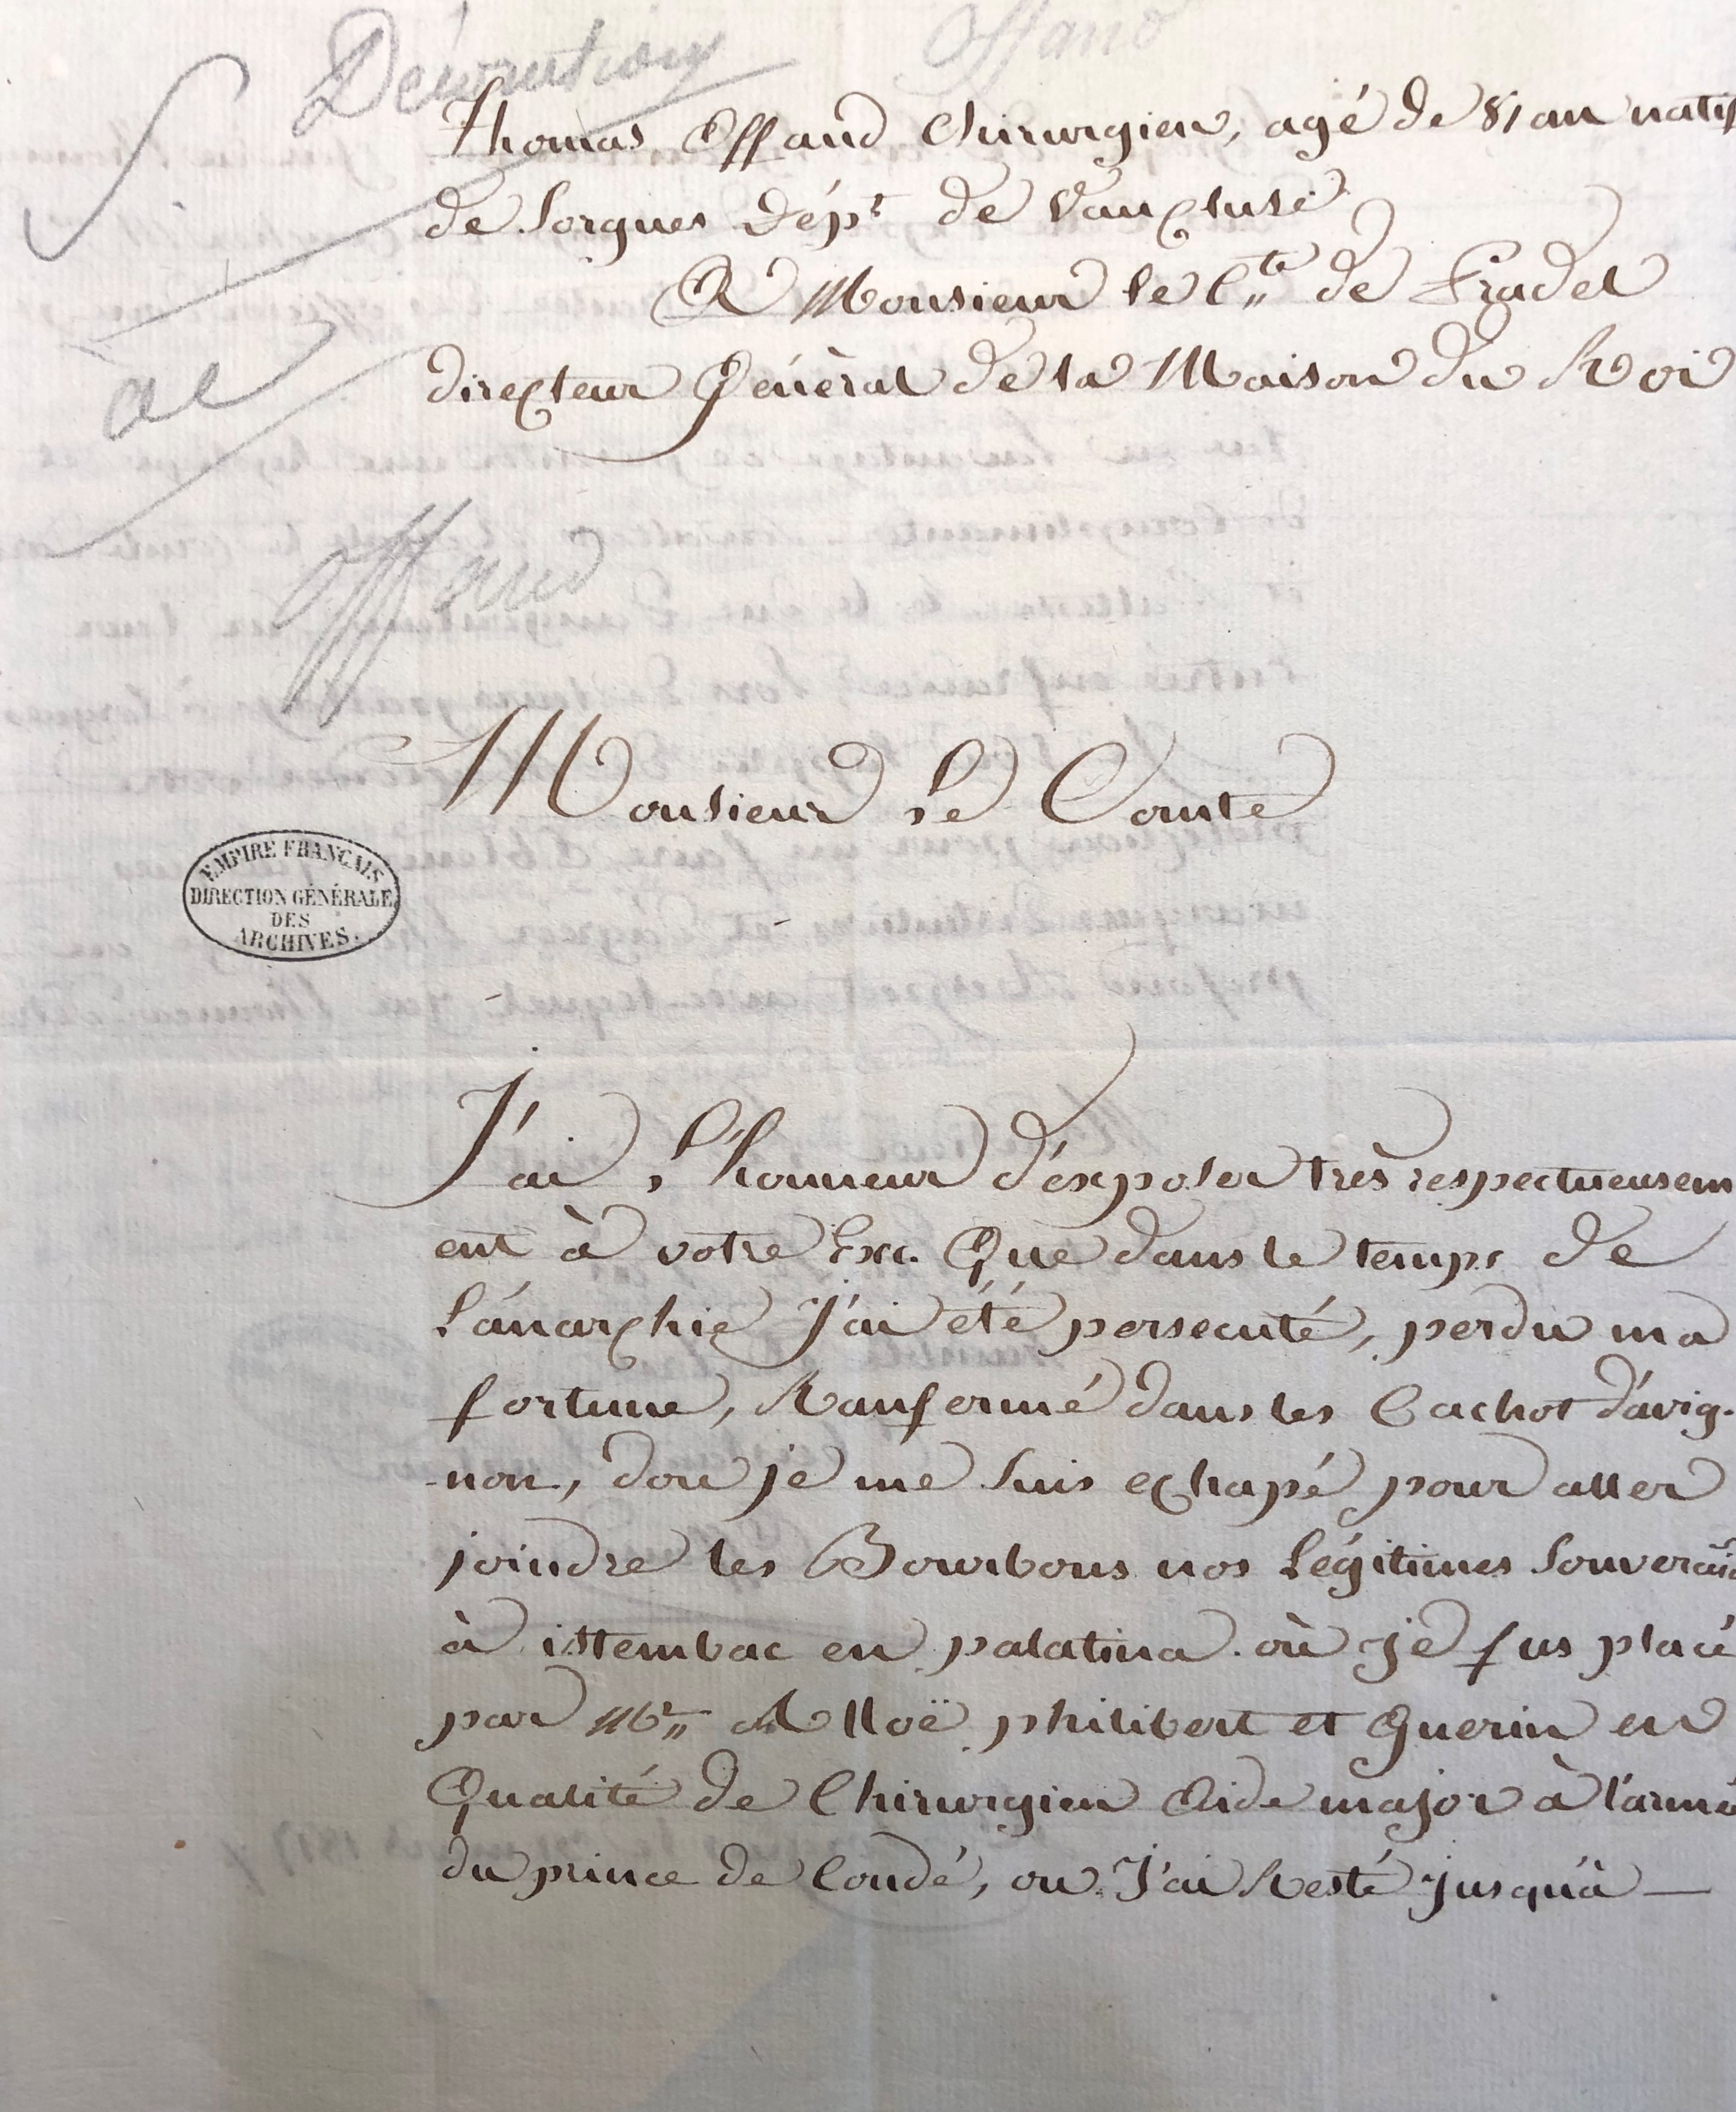 Décoration
Offand
Thomas Offand Chirurgien, agé de 81 an natif
de Sorgues Dépt de Vaucluse
A Monsieur le Cte de Pradel
directeur Général de la Maison du Roi
Offand
Monsieur le Comte
EMPIRE FRANÇAIS
DIRECTION GÉNÉRALE
DES
ARCHIVES.
J'ai l'honneur d'exposer très respectueusem
ent à votre Exc. Que dans le temps de
l'anarchie J'ai été persecuté, perdu ma
fortune, Ranfermé dans les Cachot d'avig-
-non, dou je me suis echapé pour aller
joindre les Bourbons nos légitimes souverains
à istembac en palatina. où je fus placé
par Mrs Alloë philibert et Guerin en
Qualité de Chirurgien Aide major à l'armé
du prince de Condé, ou J'ai Resté jusqu'à —